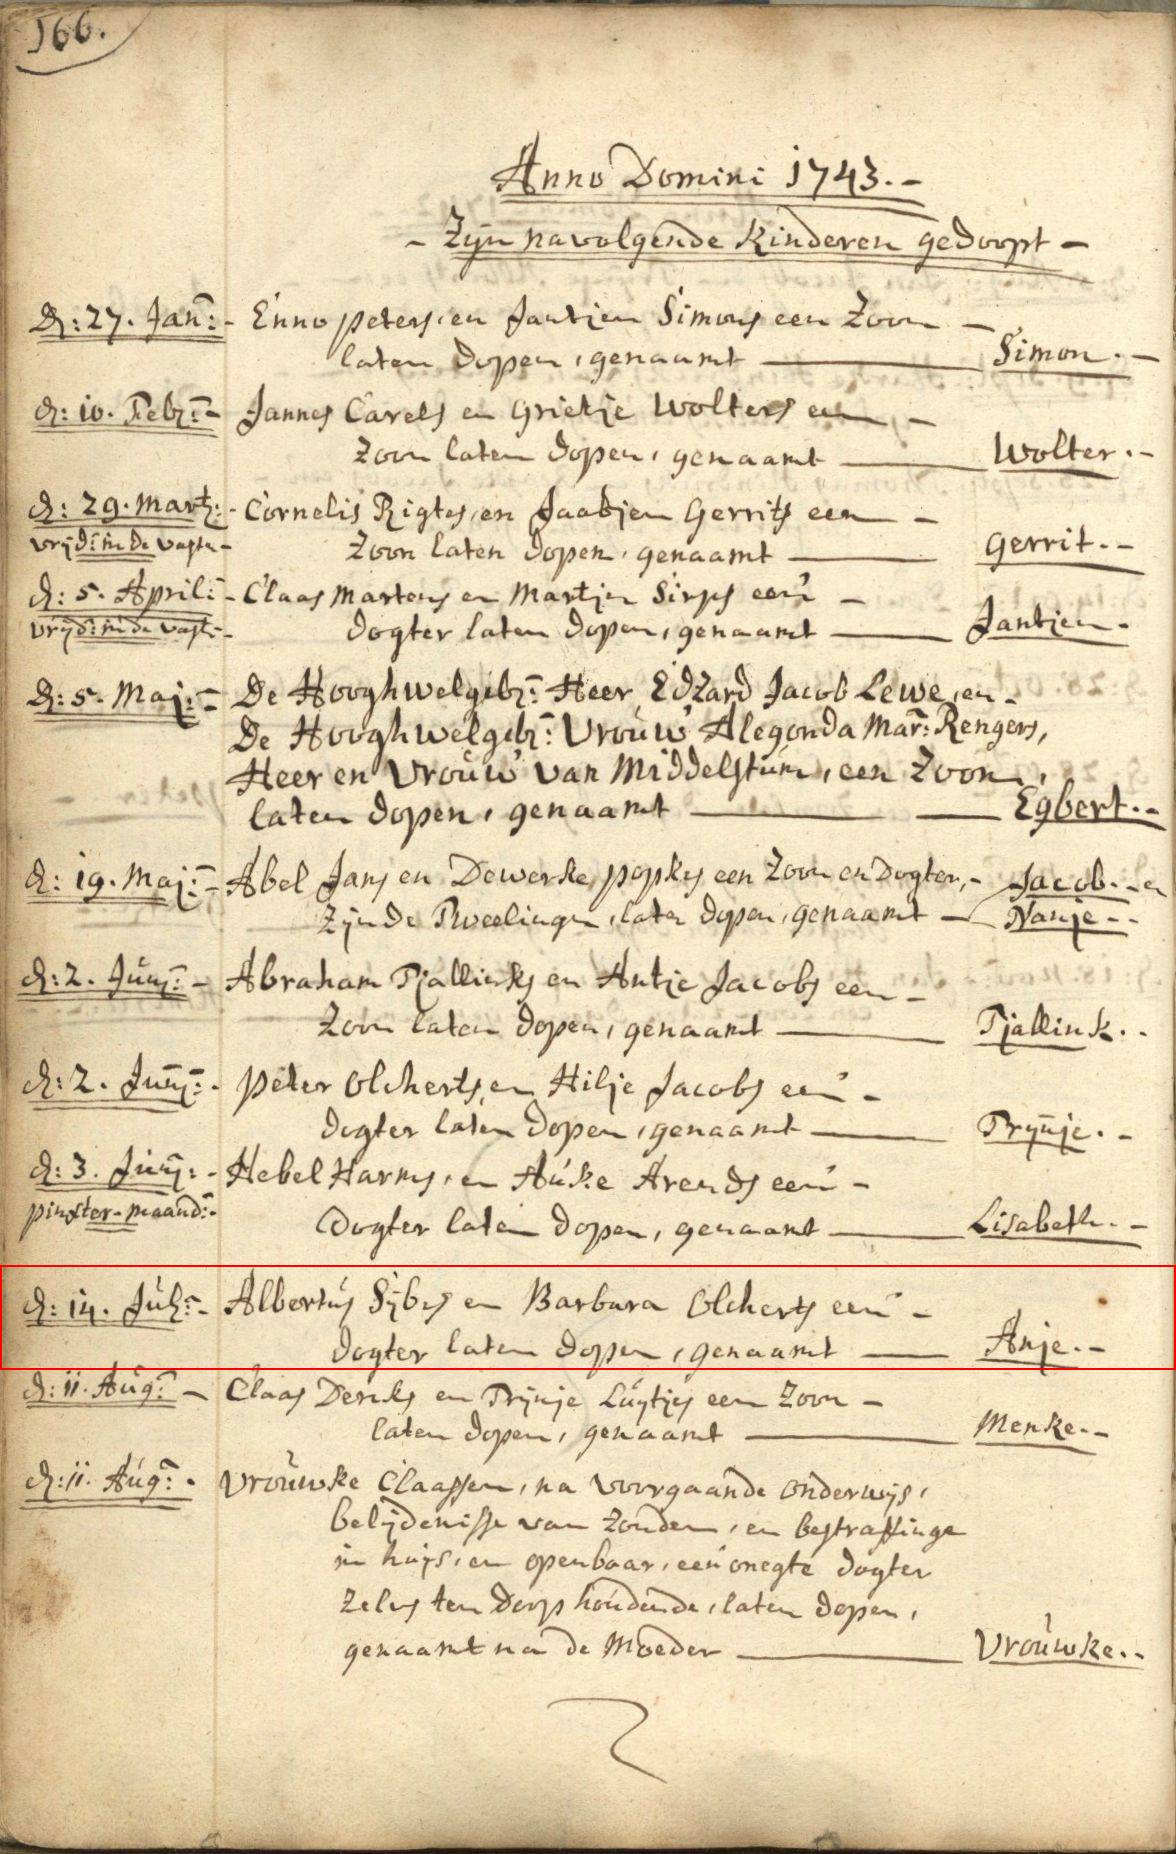 166.
Anno Domini 1743.-
- Zijn navolgende Kinderen gedoopt -
d: 27. Jan:- Enno peters, en Jantjen Simons een Zoon -
laten dopen, genaamt — Simon. -
d: 10. Feb:- Jannes Carels en Grietje Wolters een -
Zoon laten dopen, genaamt — Wolter. -
d: 29. Mart:- Cornelis Rigtes, en Jaabjen Gerrits een -
vrijd: in de vaste - Zoon laten dopen, genaamt — Gerrit. -
d: 5. April:- Claas Martens en Martjen Sirps een -
vrijd: in de vast:- dogter laten dopen, genaamt — Jantjen -
d: 5. Maj:- De Hooghwelgeb: Heer Edzard Jacob Lewe, en -
De Hooghwelgeb: Vrouw Alegonda Mar: Rengers,
Heer en Vrouw van Middelstum, een Zoon,
laten dopen, genaamt — Egbert. -
d: 19. Maj:- Abel Jans en Dewerke popkes een Zoon en Dogter, - Jacob. - en
Zijnde Tweelingen, laten dopen, genaamt — Nanje - -
d: 2. Junij:- Abraham Tjallinks en Antje Jacobs een -
Zoon laten dopen, genaamt — Tjallink. -
d: 2. Junij:- peter Olcherts, en Hilje Jacobs een -
dogter laten dopen, genaamt — Trijnje. -
d: 3. Junij:- Hebel Harms, en Auke Arends een -
pinxter-maand:- Dogter laten dopen, genaamt — Lisabeth. -
d: 14. Jul:- Albertus Sijbes en Barbara Olcherts een -
dogter laten dopen, genaamt — Anje. -
d: 11. Aug:- Claas Derks en Trijnje Luijtjes een Zoon -
laten dopen, genaamt — Menke. -
d: 11. Aug:- Vrouwke Claassen, na voorgaande onderwijs,
belijdenisse van Zonden, en bestraffinge
in huijs, en openbaar, een onegte dogter
Zelvs ten Doop houdende, laten dopen,
genaamt na de Moeder — Vrouwke. -